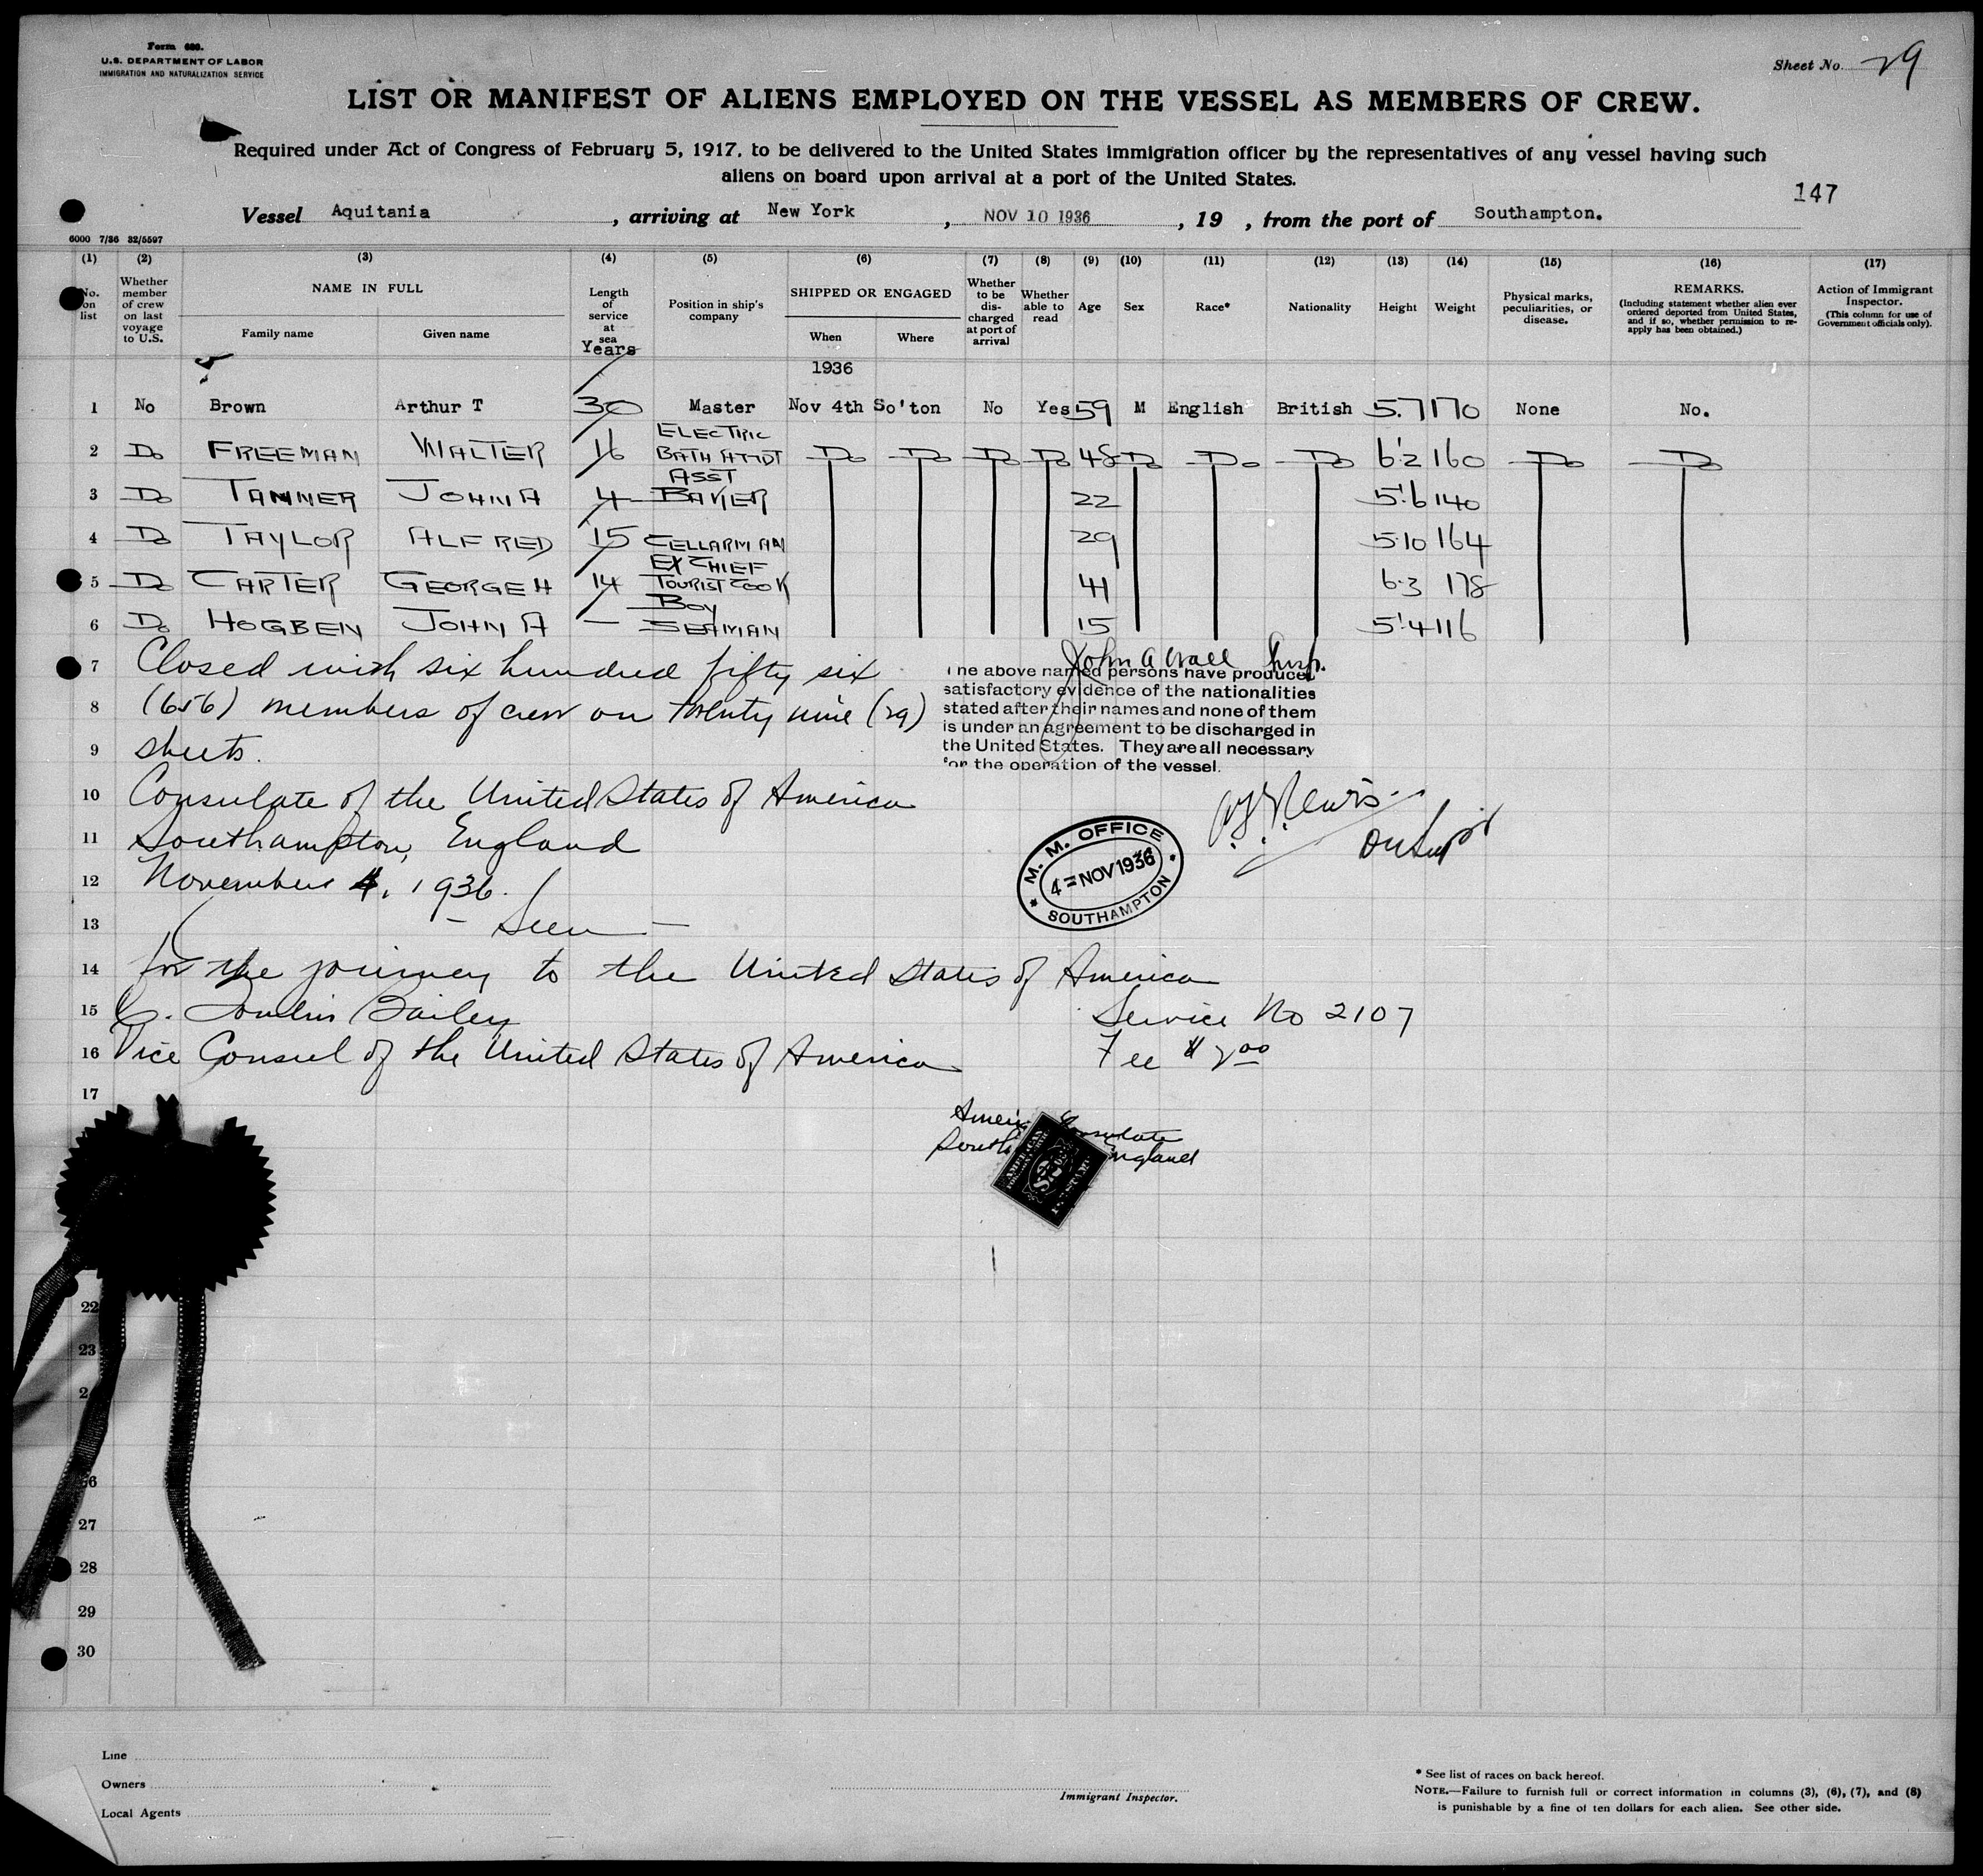 Form 680.
U.S. DEPARTMENT OF LABOR
IMMIGRATION AND NATURALIZATION SERVICE
Sheet No. 29
LIST OR MANIFEST OF ALIENS EMPLOYED ON THE VESSEL AS MEMBERS OF CREW.
Required under Act of Congress of February 5, 1917, to be delivered to the United States immigration officer by the representatives of any vessel having such
aliens on board upon arrival at a port of the United States.
147
Vessel Aquitania, arriving at New York, NOV 10 1936, 19 , from the port of Southampton.
6000 7/36 32/5597
(1) (2) (3) (4) (5) (6) (7) (8) (9) (10) (11) (12) (13) (14) (15) (16) (17)
No. on list
Whether member of crew on last voyage to U.S.
NAME IN FULL
Family name Given name
Length of service at sea
Years
Position in ship's company
SHIPPED OR ENGAGED
When Where
Whether to be discharged at port of arrival
Whether able to read
Age
Sex
Race*
Nationality
Height
Weight
Physical marks, peculiarities, or disease.
REMARKS.
(Including statement whether alien ever ordered deported from United States, and if so, whether permission to reapply has been obtained.)
Action of Immigrant Inspector.
(This column for use of Government officials only).
1936
1 No Brown Arthur T 30 Master Nov 4th So'ton No Yes 59 M English British 5.7 170 None No.
2 Do FREEMAN WALTER 16 ELECTRIC BATH ATTDT Do Do Do Do 48 Do Do Do 6'2 160 Do Do
3 Do TANNER JOHN A 4 ASST BAKER 22 5'6 140
4 Do TAYLOR ALFRED 15 CELLARMAN 29 5·10 164
5 Do CARTER GEORGE H 14 EX CHIEF TOURIST COOK 41 6·3 178
6 Do HOGBEN JOHN A — BOY SEAMAN 15 5'4 116
7 Closed with six hundred fifty six
8 (656) members of crew on twenty nine (29)
9 sheets.
John A Wall
The above named persons have produced
satisfactory evidence of the nationalities
stated after their names and none of them
is under an agreement to be discharged in
the United States. They are all necessary
for the operation of the vessel.
10 Consulate of the United States of America
11 Southampton, England
12 November 4, 1936.
M. M. OFFICE
4 = NOV 1936
SOUTHAMPTON
13 – Seen –
14 for the journey to the United States of America
15 Bailey Service No 2107
16 Vice Consul of the United States of America Fee $2.00
17
American Consulate
England
AMERICAN
$2
22
23
26
27
28
29
30
Line
Owners
Local Agents
Immigrant Inspector.
* See list of races on back hereof.
NOTE.—Failure to furnish full or correct information in columns (3), (6), (7), and (8)
is punishable by a fine of ten dollars for each alien. See other side.